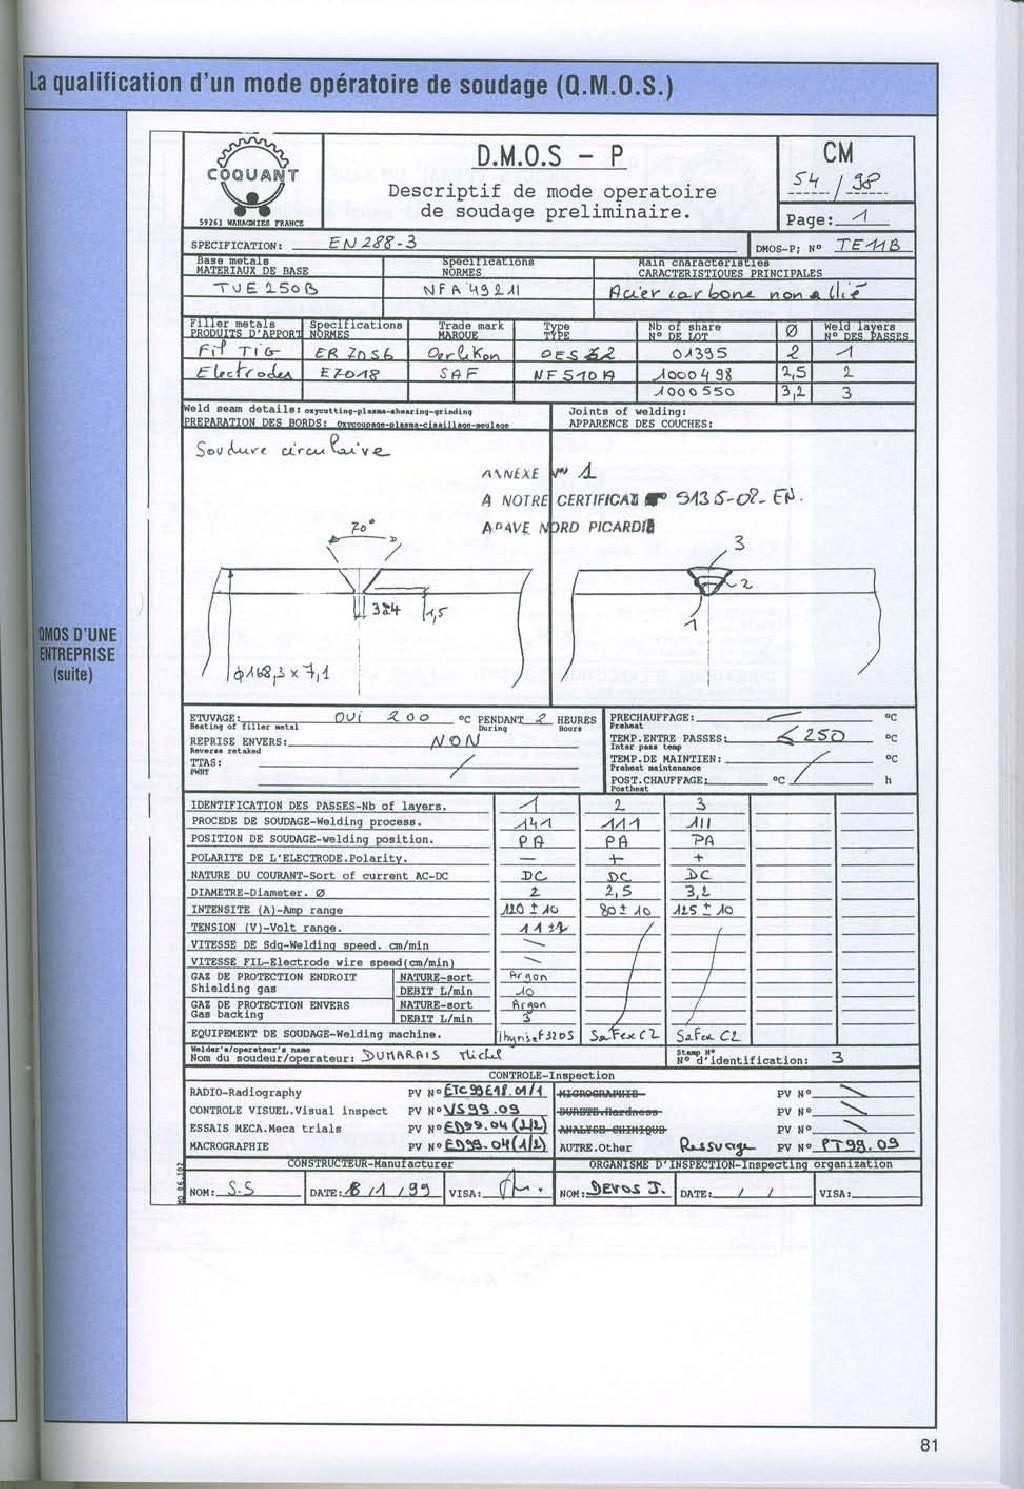 La qualification d'un mode opératoire de soudage (Q.M.O.S.)
QMOS D'UNE
ENTREPRISE
(suite)
COQUANT
59261 WAHAGNIES FRANCE
D.M.O.S - P
Descriptif de mode operatoire
de soudage preliminaire.
CM
54 / 98
Page: 1
SPECIFICATION: EN 288-3
DMOS-P; N° TE 11 B
Base metals
MATERIAUX DE BASE
Specifications
NORMES
Main characteristics
CARACTERISTIQUES PRINCIPALES
TUE 250 B
NF A 49 211
Acier carbone non allié
Filler metals
PRODUITS D'APPORT
Specifications
NORMES
Trade mark
MARQUE
Type
TYPE
Nb of share
N° DE LOT
Ø
Weld layers
N° DES PASSES
Fil TIG
ER 70S6
Oerlikon
01395
2
1
Electrodes
E7018
SAF
NF 510 A
1000498
2,5
2
1000550
3,2
3
Weld seam details: oxycutting-plasma-shearing-grinding
PREPARATION DES BORDS: Oxycoupage-plasma-cisaillage-meulage
Joints of welding:
APPARENCE DES COUCHES:
Soudure circulaire
ANNEXE N° 1
A NOTRE CERTIFICAT 9135-02-EN.
APAVE NORD PICARDIE
70°
3
2
1
1,5
Ф 168,3 x 7,1
ETUVAGE: OUI 200 °C PENDANT 2 HEURES
Heating of filler metal During Hours
REPRISE ENVERS: NON
Reverse retaked
TTAS: /
PWHT
PRECHAUFFAGE: °C
Preheat
TEMP.ENTRE PASSES: ≤ 250 °C
Inter pass temp
TEMP.DE MAINTIEN: °C
Preheat maintenance
POST.CHAUFFAGE: °C / h
Postheat
IDENTIFICATION DES PASSES-Nb of layers. 1 2 3
PROCEDE DE SOUDAGE-Welding process. 141 111 111
POSITION DE SOUDAGE-welding position. PA PA PA
POLARITE DE L'ELECTRODE.Polarity. — + +
NATURE DU COURANT-Sort of current AC-DC DC DC DC
DIAMETRE-Diameter. Ø 2 2,5 3,2
INTENSITE (A)-Amp range 120 ± 10 80 ± 10 115 ± 10
TENSION (V)-Volt range. 11 ± 2
VITESSE DE Sdg-Welding speed. cm/min
VITESSE FIL-Electrode wire speed(cm/min)
GAZ DE PROTECTION ENDROIT
Shielding gas
NATURE-sort Argon
DEBIT L/min 10
GAZ DE PROTECTION ENVERS
Gas backing
NATURE-sort Argon
DEBIT L/min 3
EQUIPEMENT DE SOUDAGE-Welding machine. Safex C2 Safex C2
Welder's/operateur's name
Nom du soudeur/operateur: DUMARAIS Michel
Stamp N°
N° d'identification: 3
CONTROLE-Inspection
RADIO-Radiography PV N° ETC 99E18.01/1
MICROGRAPHIE PV N°
CONTROLE VISUEL.Visual inspect PV N° VS 99.09
DURETE.Hardness PV N°
ESSAIS MECA.Meca trials PV N° ED99.04 (2/2)
ANALYSE CHIMIQUE PV N°
MACROGRAPHIE PV N° ED99.04 (1/2)
AUTRE.Other Ressuage PV N° PT99.09
CONSTRUCTEUR-Manufacturer
ORGANISME D'INSPECTION-Inspecting organization
NOM: S.S
DATE: 8 /1 /99
VISA:
NOM: DEVOS J.
DATE: / /
VISA:
81